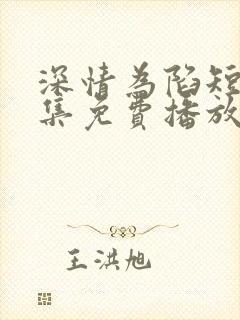 深情為陷短
集免費播放
王洪旭